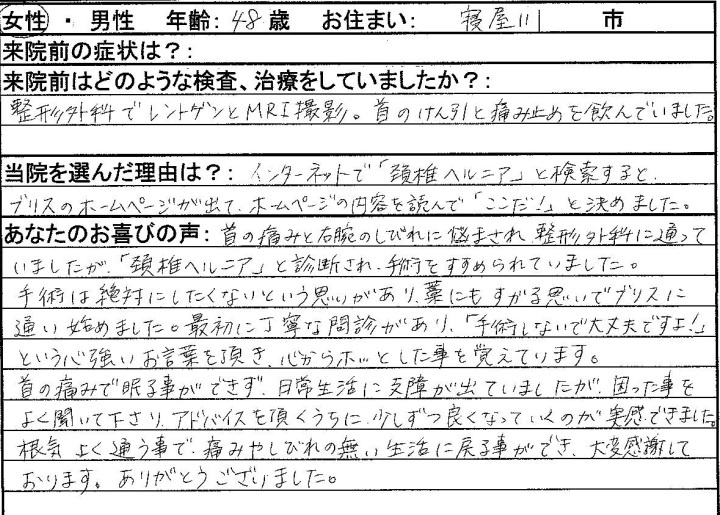 女性・男性 年齢:48歳 お住まい: 寝屋川 市
来院前の症状は？:
来院前はどのような検査、治療をしていましたか？:
整形外科でレントゲンとMRI撮影。首のけん引と痛み止めを飲んでいました。
当院を選んだ理由は？: インターネットで「頚椎ヘルニア」と検索すると、
ブリスのホームページが出て、ホームページの内容を読んで「ここだ!」と決めました。
あなたのお喜びの声: 首の痛みと右腕のしびれに悩まされ、整形外科に通って
いましたが、「頚椎ヘルニア」と診断され、手術をすすめられていました。
手術は絶対にしたくないという思いがあり、藁にもすがる思いでブリスに
通い始めました。最初に丁寧な問診があり、「手術しないで大丈夫ですよ!」
という心強いお言葉を頂き、心からホッとした事を覚えています。
首の痛みで眠る事ができず、日常生活に支障が出ていましたが、困った事を
よく聞いて下さり、アドバイスを頂くうちに、少しずつ良くなっていくのが実感できました。
根気よく通う事で、痛みやしびれの無い生活に戻る事ができ、大変感謝して
おります。ありがとうございました。